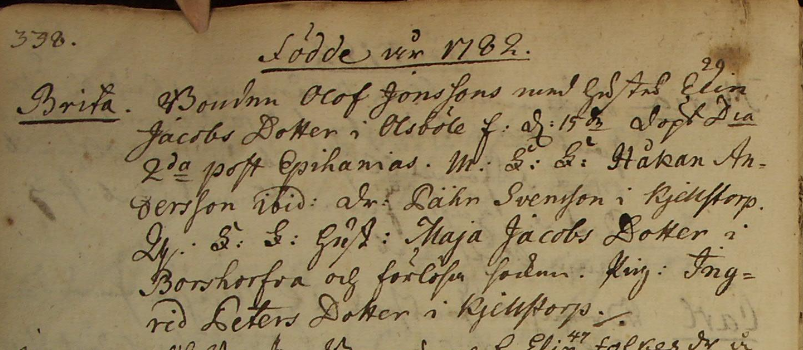 338.
Födde år 1782.
Brita. Bonden Olof Jonssons med Hustrs Elin 29
Jacobs Dotter i Olsbole f: d: 15 döpt Dca
2da post Epihanias. M: B: B: Håkan An-
dersson ibid: Dr: Pähr Svensson i Kjellstorp.
B: B: Hust: Maja Jacobs Dotter i
och förlösa socken. Pig: Ing-
rid Peters Dotter i Kjellstorp.
47
Elin